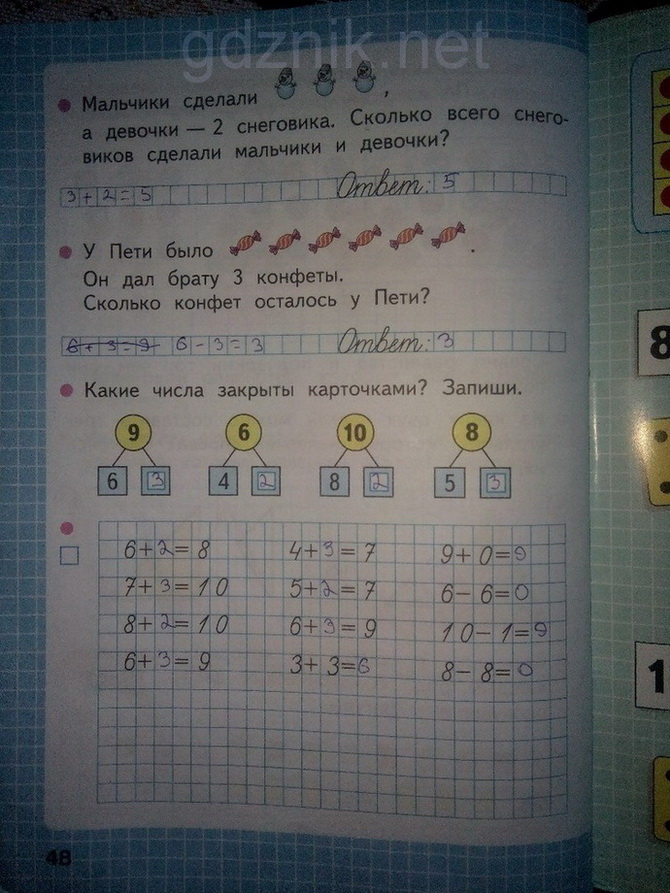 gdznik.net
Мальчики сделали ,
а девочки — 2 снеговика. Сколько всего снего-
виков сделали мальчики и девочки?
3+2=5 Ответ: 5
У Пети было .
Он дал брату 3 конфеты.
Сколько конфет осталось у Пети?
6+3=9 6-3=3 Ответ: 3
Какие числа закрыты карточками? Запиши.
9 6 10 8
6 3 4 2 8 2 5 3
6+2=8 4+3=7 9+0=9
7+3=10 5+2=7 6-6=0
8+2=10 6+3=9 10-1=9
6+3=9 3+3=6 8-8=0
48
8
1